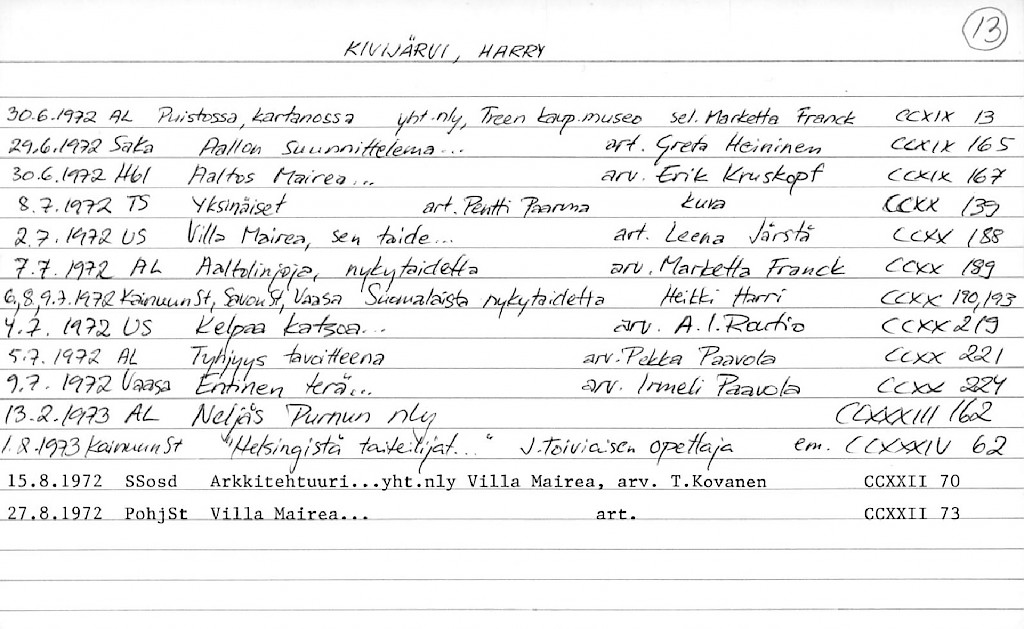 13
KIVIJÄRVI, HARRY
30.6.1972 AL Puistossa, kartanossa yht.nly, Treen kaup.museo sel. Marketta Franck CCXIX 13
29.6.1972 SaKa Aallon suunnittelema... art. Greta Heininen CCXIX 165
30.6.1972 Hbl Aaltos Mairea... arv. Erik Kruskopf CCXIX 167
8.7.1972 TS Yksinäiset art. Pentti Paarma kuva CCXX 139
2.7.1972 US Villa Mairea, sen taide... art. Leena Järstä CCXX 188
7.7.1972 AL Aaltolinjoja, nykytaidetta arv. Marketta Franck CCXX 189
6,8,9.7.1972 Kainuun St, Savon St, Vaasa Suomalaista nykytaidetta Heikki Harri CCXX 190,193
4.7.1972 US Kelpaa katsoa... arv. A.I.Routio CCXX 219
5.7.1972 AL Tyhjyys tavoitteena arv. Pekka Paavola CCXX 221
9.7.1972 Vaasa Entinen terä... arv. Irmeli Paavola CCXX 224
13.2.1973 AL Neljäs Purnun nly CCXXXIII 162
1.8.1973 Kainuun St "Helsingistä taiteilijat..." J.Toiviaisen opettaja em. CCXXXIV 62
15.8.1972 SSosd Arkkitehtuuri...yht.nly Villa Mairea, arv. T.Kovanen CCXXII 70
27.8.1972 PohjSt Villa Mairea... art. CCXXII 73